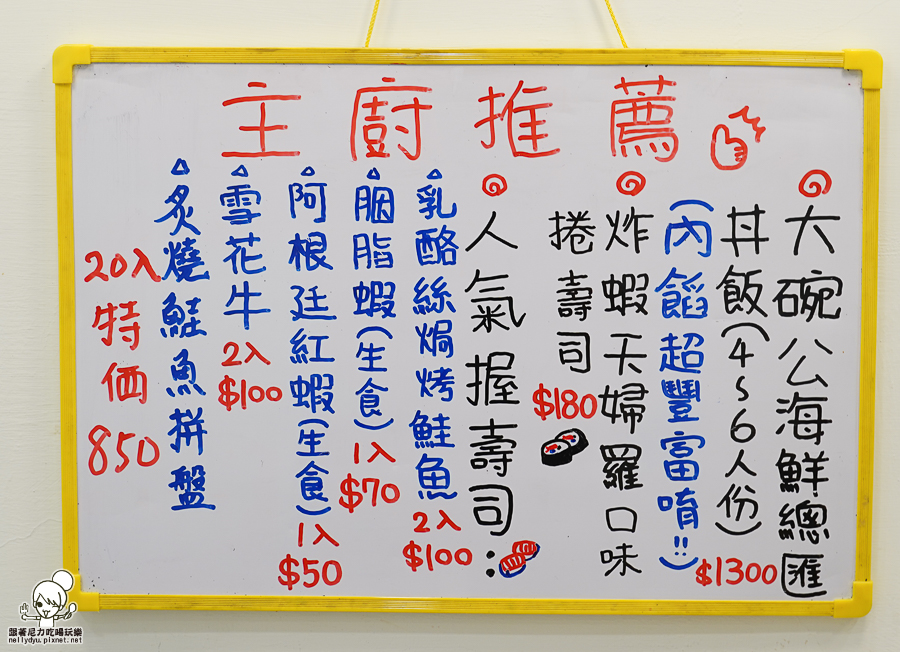 主廚推薦
大碗公海鮮總匯
丼飯(4~6人份)
$1300
(內餡超豐富唷!!)
炸蝦天婦羅口味
捲壽司
$180
人氣握壽司:
乳酪絲焗烤鮭魚
2入
$100
胭脂蝦(生食)
1入
$70
阿根廷紅蝦(生食)
1入
$50
雪花牛
2入
$100
炙燒鮭魚拼盤
20入
特価
850
跟著尼力吃喝玩樂
nellydyu.pixnet.net